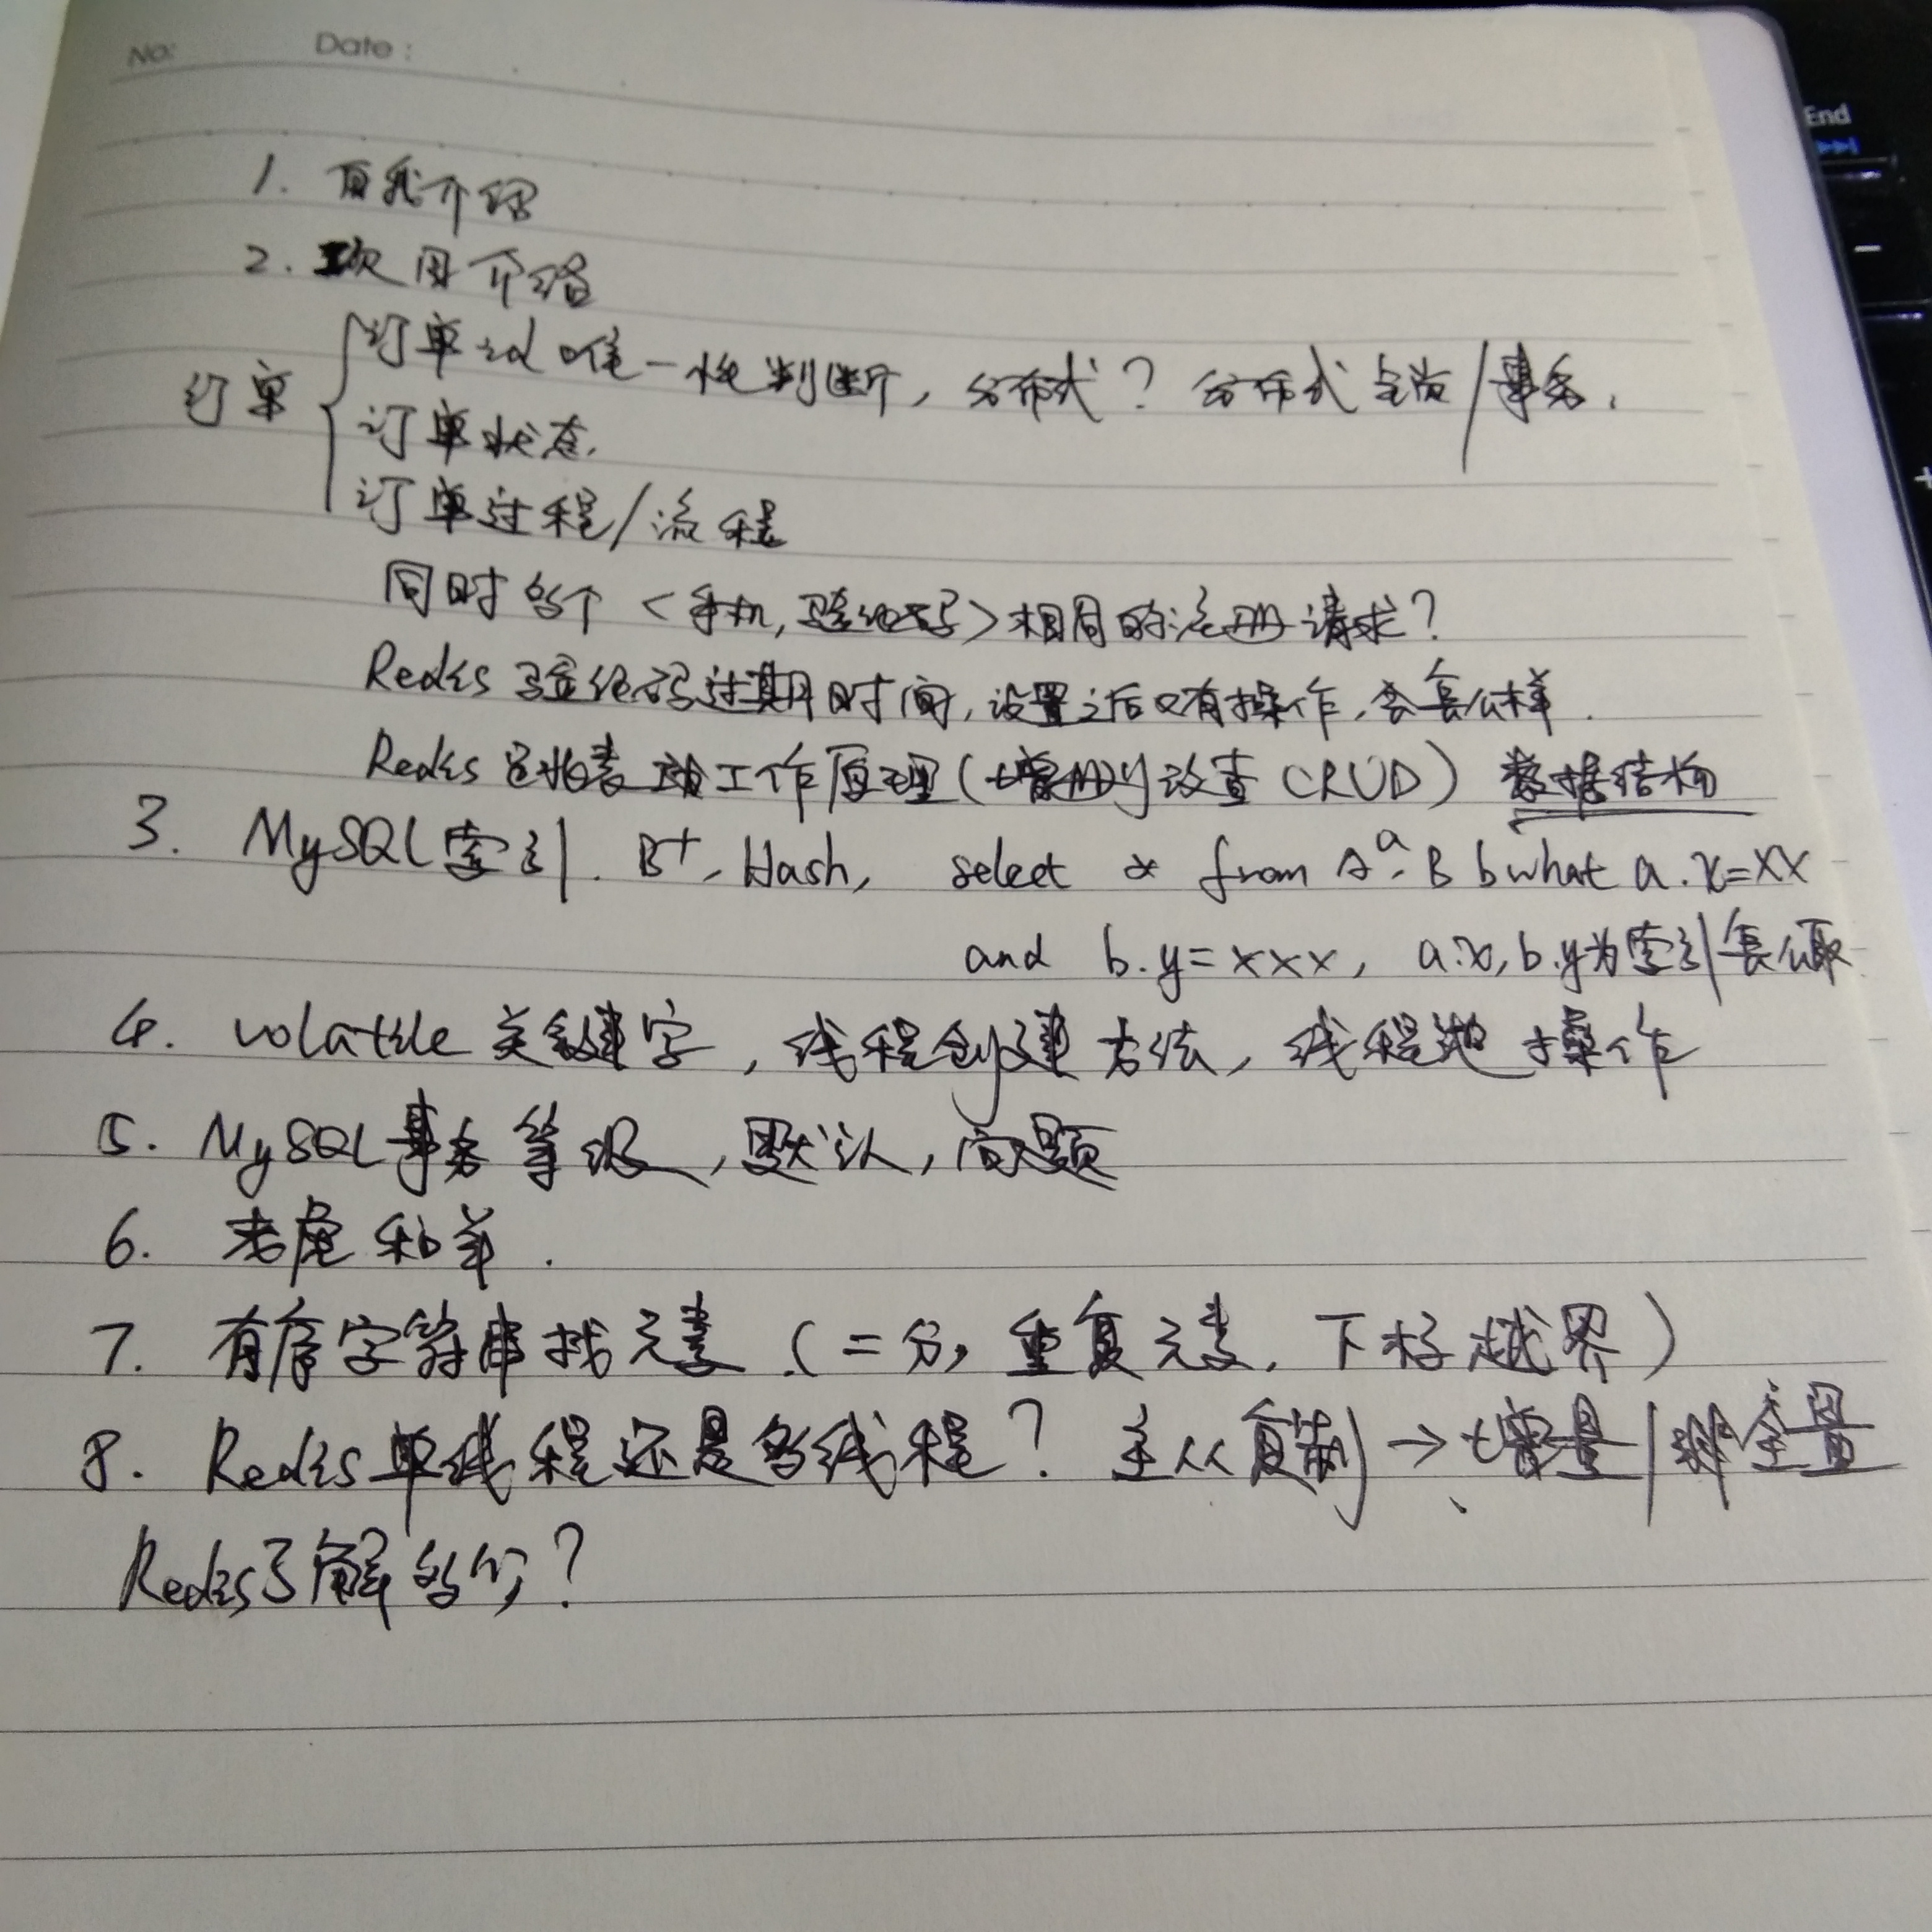 No: Date:
End
1. 自我介绍
2. 项目介绍
订单
订单id唯一性判断，分布式？分布式锁/事务.
订单状态.
订单过程/流程
同时多个<手机,验证码>相同的注册请求？
Redis 验证码过期时间,设置之后又有操作,会怎么样.
Redis 工作原理(增删改查 CRUD) 数据结构
3. MySQL索引. B+, Hash, select * from A a, B b what a.x=xx
and b.y=xxx, a.x, b.y为索引怎么取
4. volatile 关键字，线程创建方法，线程池操作
5. MySQL事务等级，默认，问题
6. 老虎和羊.
7. 有序字符串找元素(二分,重复元素,下标越界)
8. Redis单线程还是多线程？主从复制→增量/非全量
Redis了解多少？